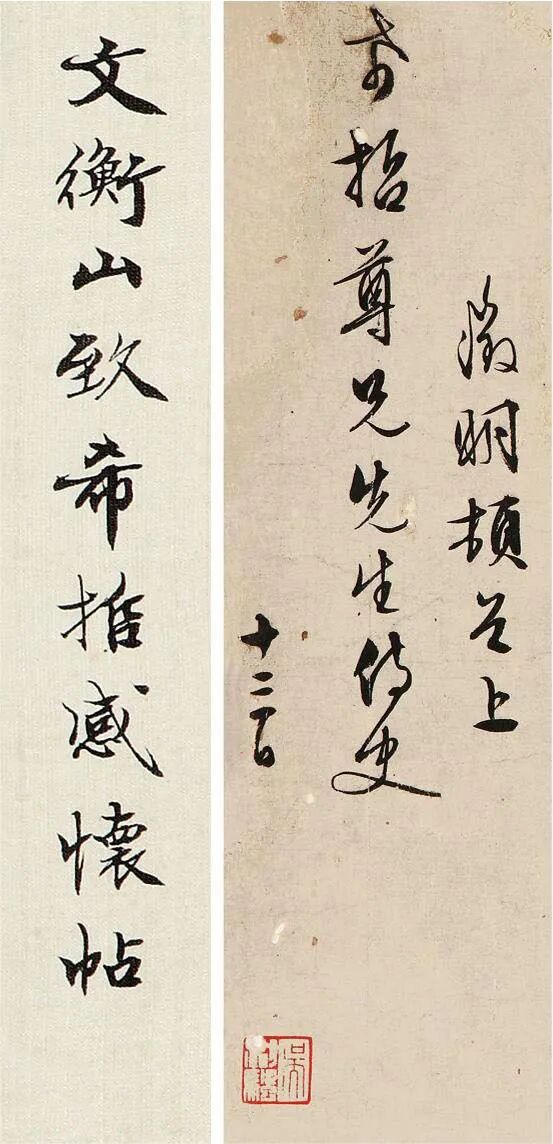 徵明頓首上
希哲尊兄先生侍史
十二日
文衡山致希推感懷帖